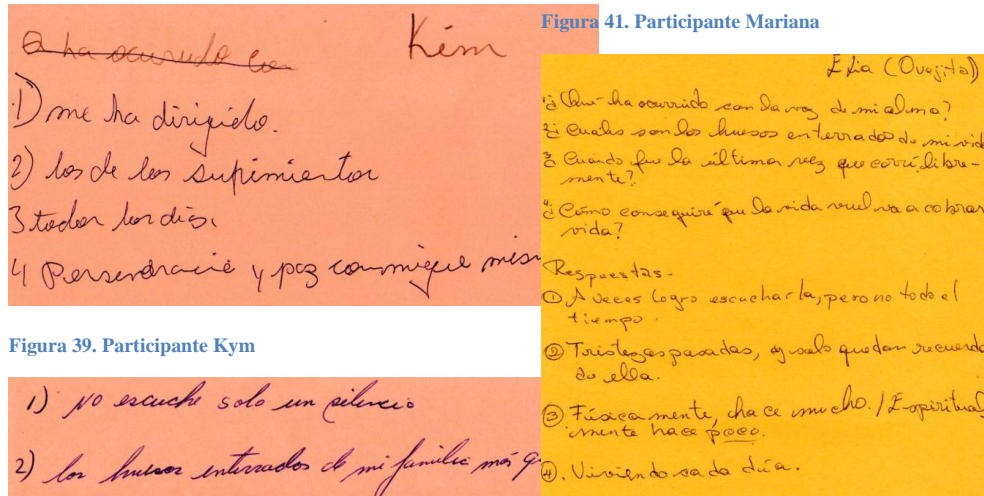 Kim
a ha ocurrido con
1) me ha dirigido.
2) los de los sufrimientos
3 todos los dias.
4 Perseverancia y paz conmigue mism
Figura 39. Participante Kym
1) No escuche solo un silencio
2) los huesos enterrados de mi familia más q
Figura 41. Participante Mariana
Elia (Ovejita)
1¿Qué ha ocurrido con la voz de mi alma?
2¿Cuales son los huesos enterrados de mi vid
3¿Cuándo fue la última vez que corrí libre-
mente?
4¿Cómo conseguiré que la vida vuelva a cobrar
vida?
Respuestas.
① A veces logro escucharla, pero no todo el
tiempo.
② Tristezas pasadas, y solo quedan recuerdo
de ella.
③ Físicamente, hace mucho. / Espiritual
mente hace poco.
④. Viviendo cada día.